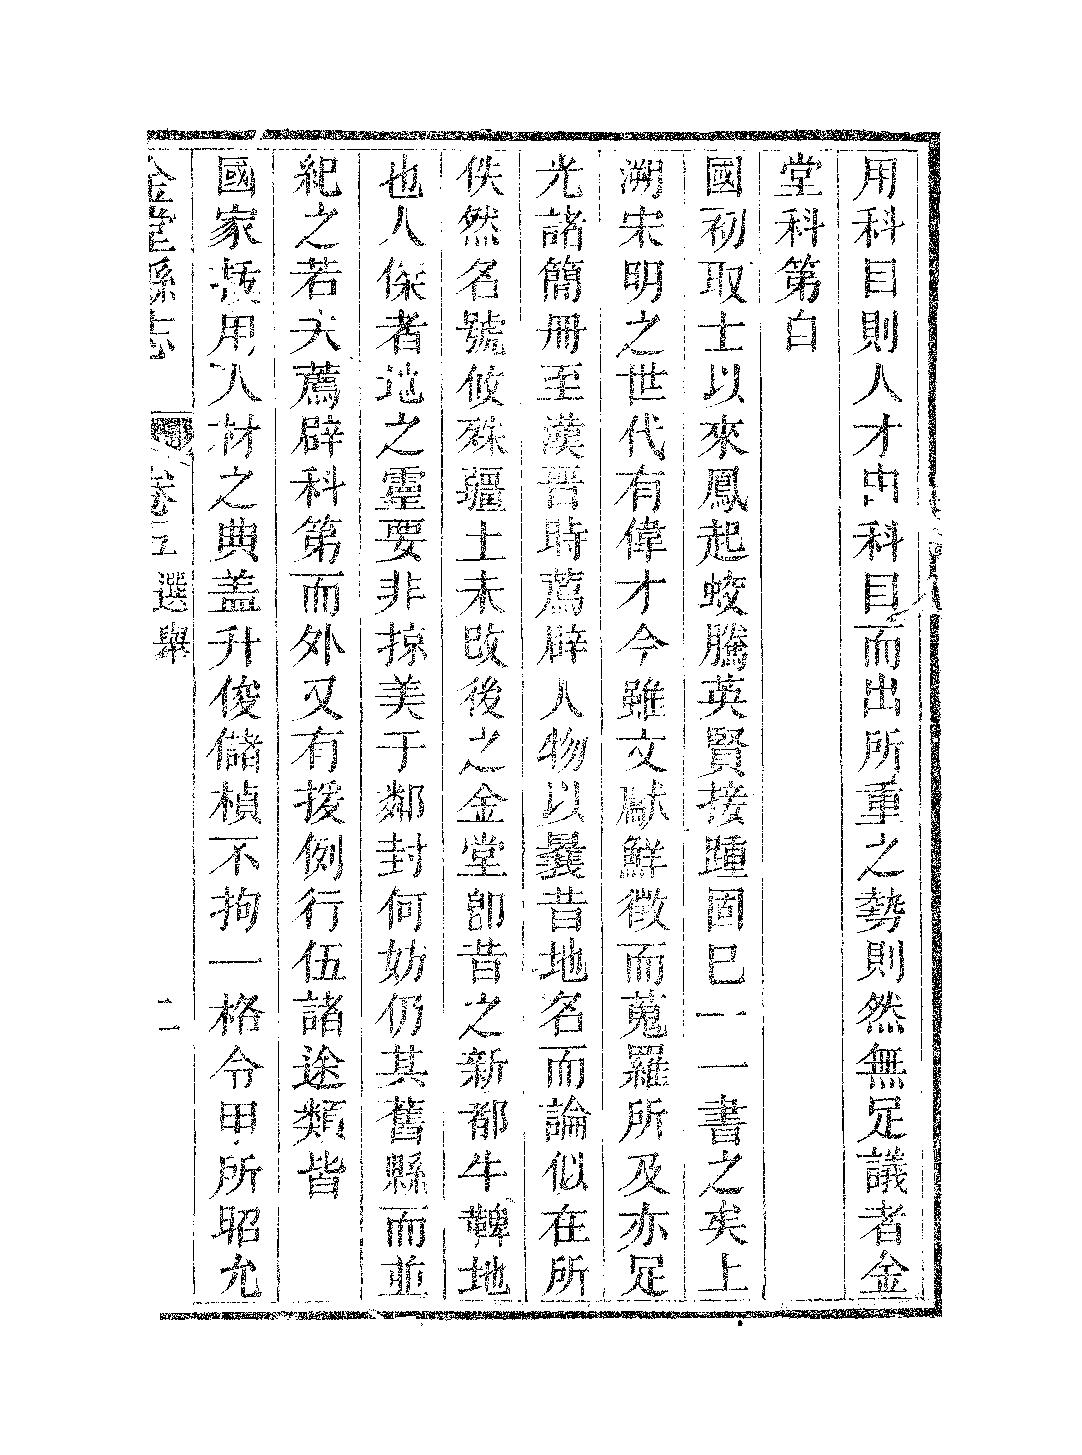 用科目則人才由科目而出所重之勢則然無足議者金
堂科第白
國初取士以來鳳起蛟騰英賢接踵固巳一一書之矣上
溯宋明之世代有偉才今雖文獻鮮徵而蒐羅所及亦足
光諸簡冊至漢晉時薦辟人物以曩昔地名而論似在所
佚然名號攸殊疆土未改後之金堂卽昔之新都牛鞞地
也人傑者地之靈要非掠美于鄰封何妨仍其舊縣而並
紀之若夫薦辟科第而外又有援例行伍諸途類皆
國家拔用人材之典盖升俊儲楨不拘一格令甲所昭允
金堂縣志 卷五 選舉 二